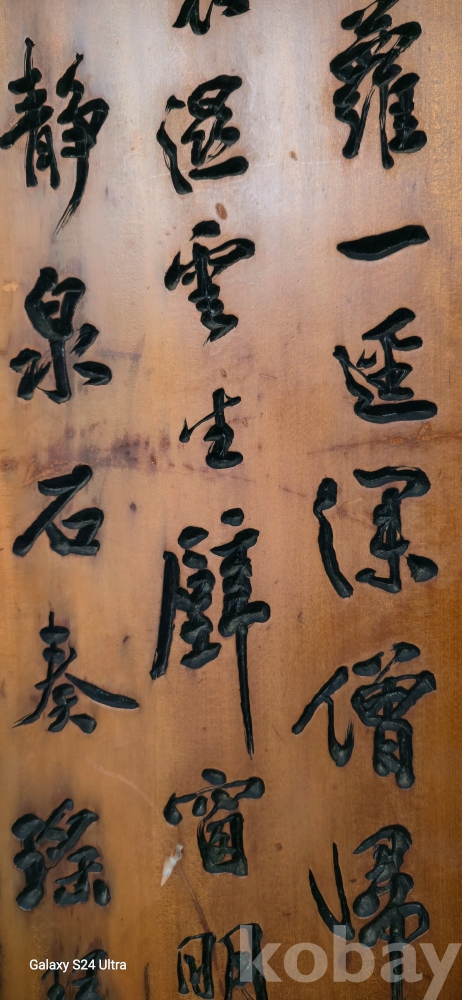 蘿一逕深僧歸
濕雲生壁窗明
靜泉石奏瑤
Galaxy S24 Ultra
kobay